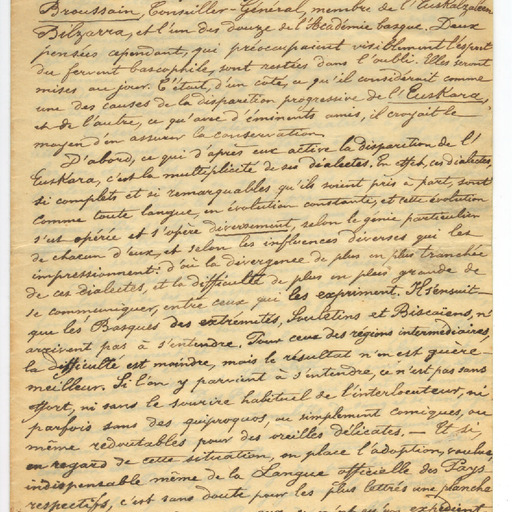 Broussain, Conseiller-Général, membre de l'Euskalzaleen
Bilzarra, et l'un des douze de l'Académie basque. Deux
pensées cependant, qui préoccupaient visiblement l'esprit
du fervent bascophile, sont restées dans l'oubli. Elles seront
mises au jour. C'était, d'un côté, ce qu'il considérait comme
une des causes de la disparition progressive de l'Euskara,
et de l'autre, ce qu'avec d'éminents amis, il croyait le
moyen d'en assurer la conservation.
D'abord, ce qui d'après eux active la disparition de l'
Euskara, c'est la multiplicité de ses dialectes. En effet, ces dialectes,
si complets et si remarquables qu'ils soient pris à part, sont
comme toute langue, en évolution constante, et cette évolution
s'est opérée et s'opère diversement, selon le génie particulier
de chacun d'eux, et selon les influences diverses qui les
impressionnent: d'où la divergence de plus en plus tranchée
de ces dialectes, et la difficulté de plus en plus grande de
se communiquer, entre ceux qui les expriment. Il s'ensuit
que les Basques des extrémités, Souletins et Biscaiens, n'
arrivent pas à s'entendre. Pour ceux des régions intermédiaires,
la difficulté est moindre, mais le résultat n'en est guère
meilleur. Si l'on y parvient à s'entendre, ce n'est pas sans
effort, ni sans le sourire habituel de l'interlocuteur, ni
parfois sans des quiproquos, ou simplement comiques, ou
même redoutables pour des oreilles délicates. — Et si,
en regard de cette situation, on place l'adoption, voulue,
indispensable même de la Langue officielle des Pays
respectifs, c'est sans doute pour les plus lettrés une planche
qu'un expédient